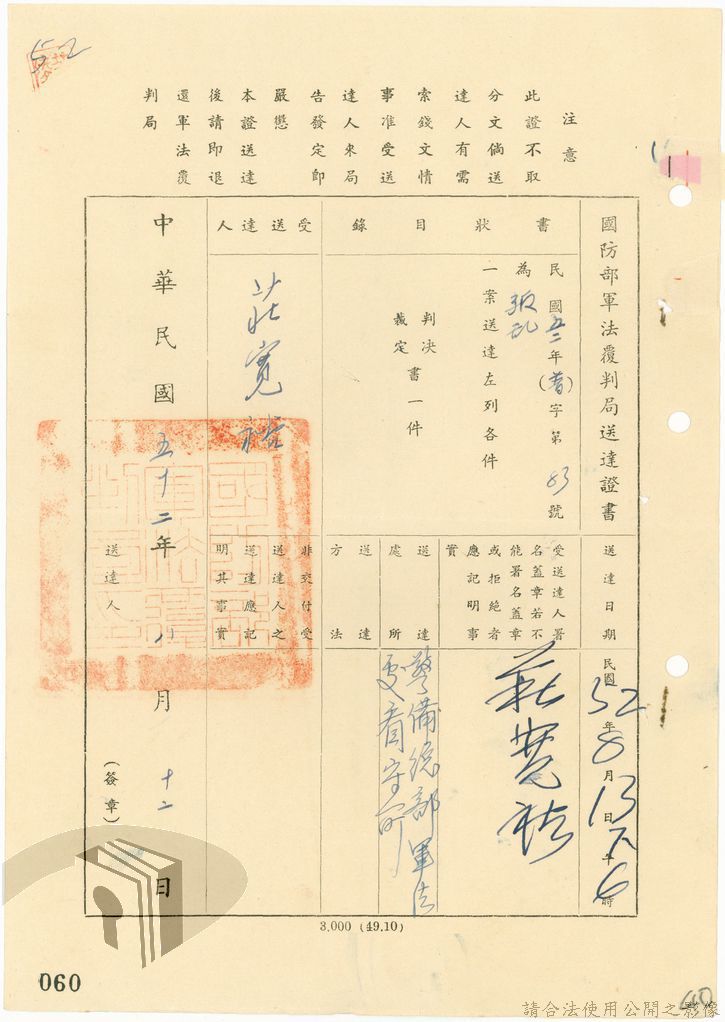 52
注意
此證不取
分文倘送
達人有需
索錢文情
事准受送
達人來局
告發定即
嚴懲
本證送達
後請即退
還軍法覆
判局
國防部軍法覆判局送達證書
送達日期
民國52年8月13日下午6時
書狀目錄
民國五二年(普)字第83號
為叛亂
一案送達左列各件
判決
裁定
書一件
受送達人署
名蓋章若不
能署名蓋章
或拒絕者
應記明事
實
莊寬裕
送達
處所
警備總部軍法
處看守所
送達
方法
受送達人
莊寬裕
非交付受
送達人之
送達應記
明其事實
中華民國五十二年八月十二日
送達人
(簽章)
3,000 (49.10)
060
60
請合法使用公開之影像